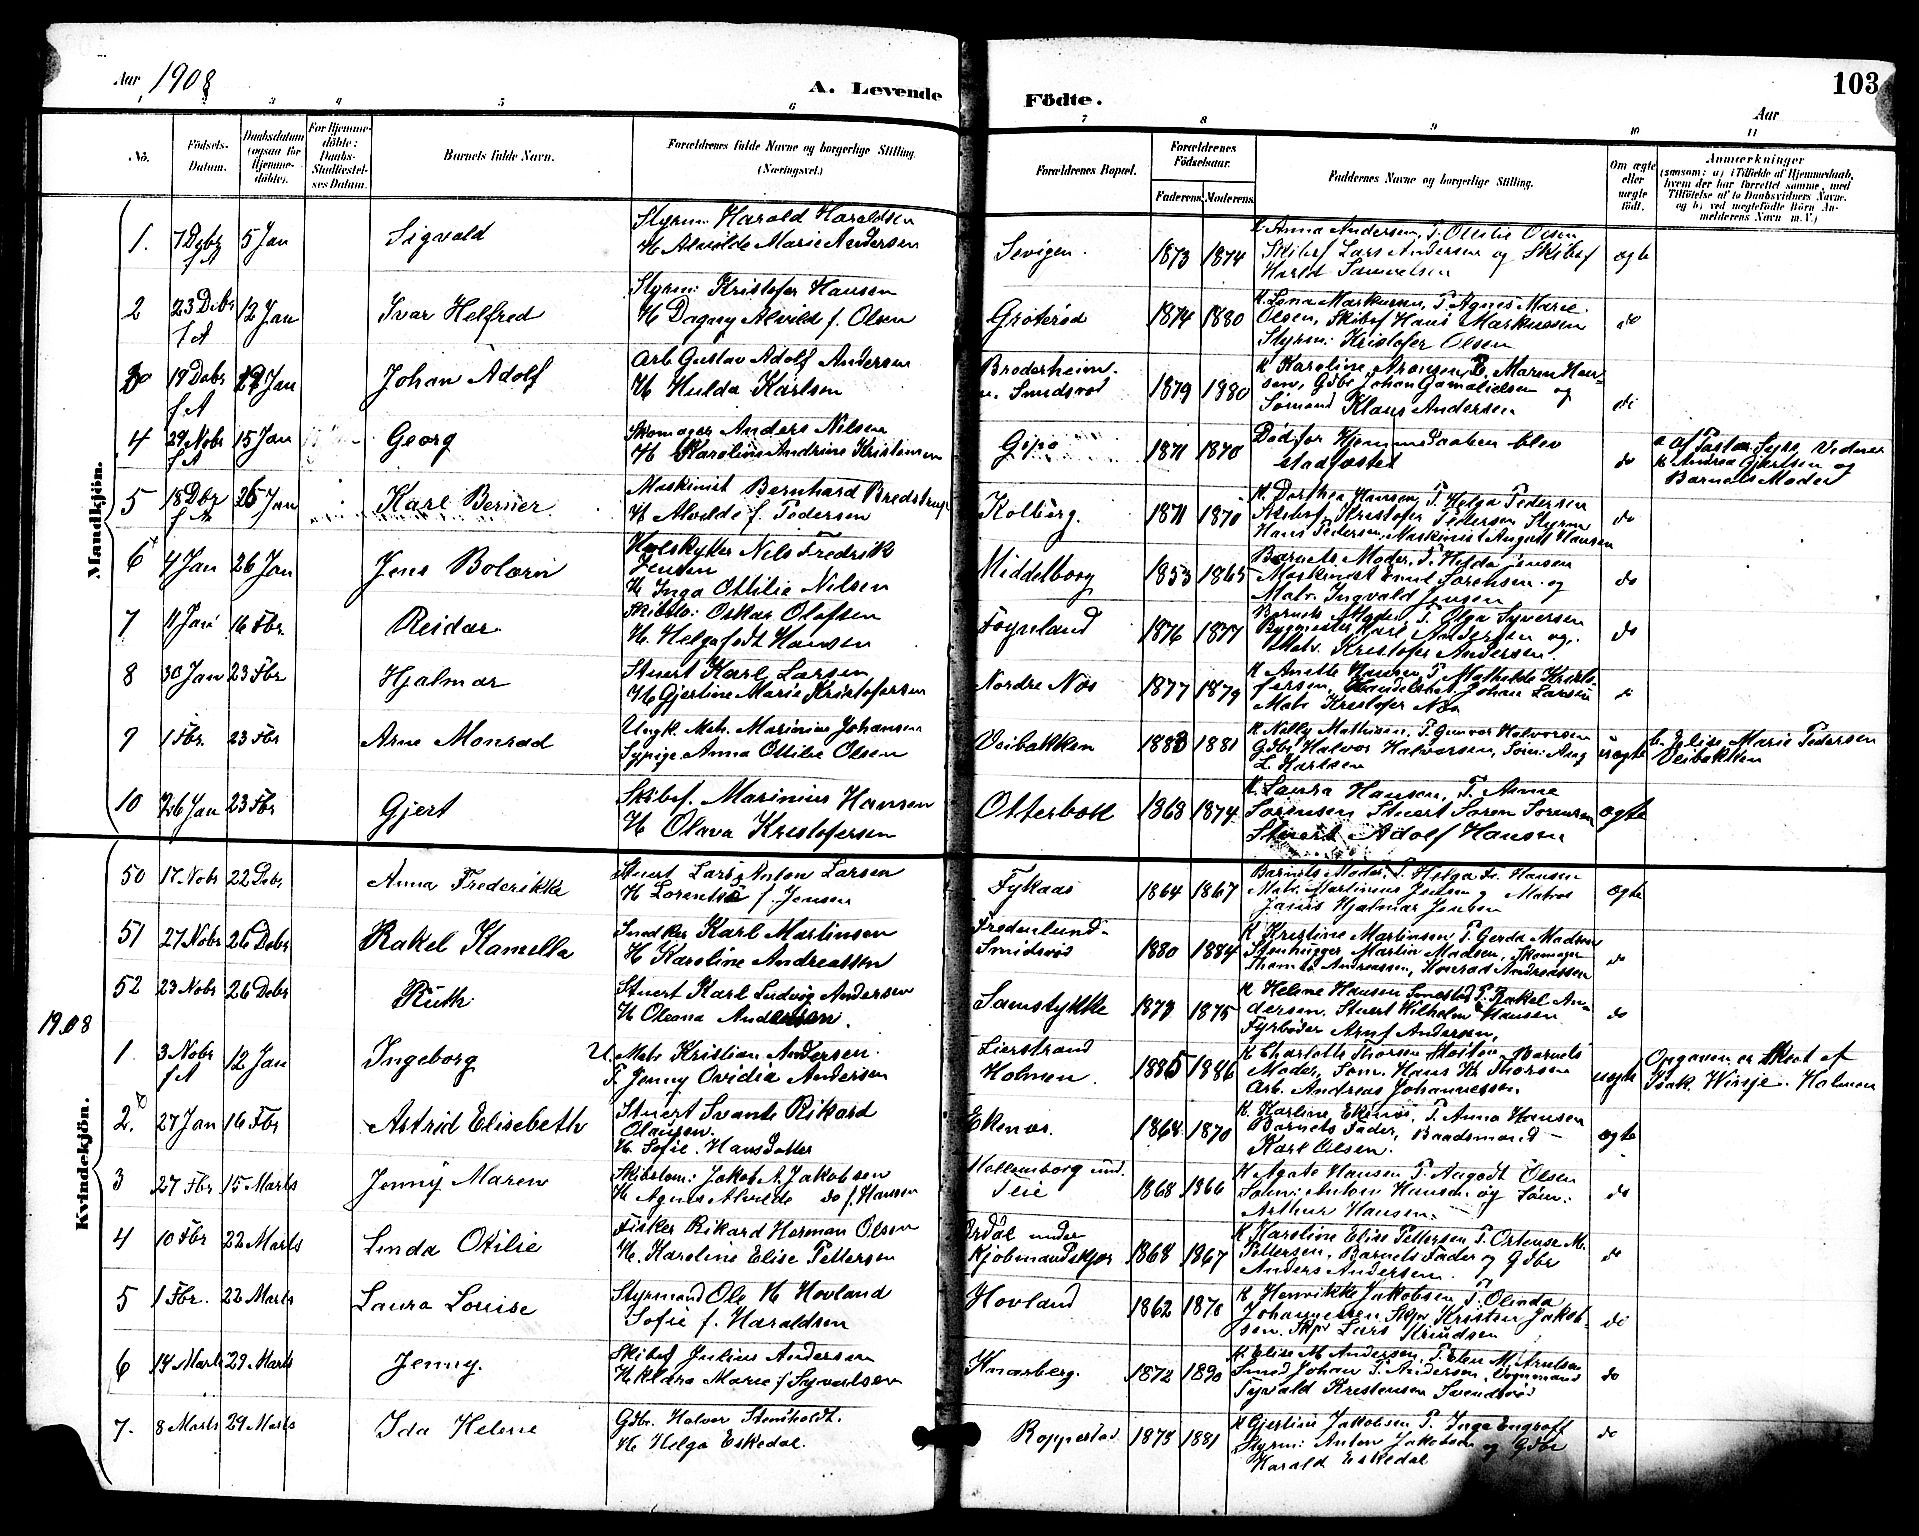 Aar 1908
A. Levende Födte.
103
Aar
3 4 5 6 7 8 9 10 11
No.
Födsels-Datum.
Daabsdatum (ogsaa for Hjemme-döbte).
For Hjemme-döbte: Daabs-Stadfæstel-ses Datum.
Barnets fulde Navn.
Forældrenes fulde Navne og borgerlige Stilling. (Næringsvei.)
Forældrenes Bopæl.
Forældrenes Födselsaar.
Faderens. Moderens.
Faddernes Navne og borgerlige Stilling.
Om ægte eller uægte födt.
Anmærkninger (saasom: a) i Tilfælde af Hjemmedaab, hvem der har forrettet samme, med Tilföielse af to Daabsvidners Navne, og b) ved uægtefödte Börn An-melderens Navn m. V.)
Mandkjön.
1. 7 Dcbr f A 5 Jan Sigvald Styrm: Harald Haraldsen
H Alvilde Marie Andersen Sevigen. 1873 1874 K Anna Andersen, P. Ottilie Olsen
Skibsf Lars Andersen og Skibsf
Harld Samuelsen ægte
2 23 Dcbr f A 12 Jan Ivar Helfred Styrm: Kristofer Hansen
H Dagny Alvild f. Olsen Gröteröd 1874 1880 K. Lena Markussen, P. Agnes Marie
Olsen, Skibsf Hans Markussen
Styrm: Kristofer Olsen do
3 19 Dcbr f A 19 Jan Johan Adolf Arb. Gustav Adolf Andersen
H Hulda Karlsen Broderheim
u. Smidsröd 1879 1880 K Karoline Aronsen, P. Maren Han-
sen, Gdbr Johan Gamalielsen og
Sömand Klaus Andersen do
4 29 Nobr f A 15 Jan Georg Skomager Anders Nilsen
H Karoline Andrine Kristensen Gipö 1871 1870 Död för Hjemmedaaben blev
stadfæstet do a af Pastor Vidner
K Andrea Gjertsen og
Barnets Moder
5 18 Dbr 26 Jan Karl Berner Maskinist Bernhard Bredstrup
H Alvilde f. Pedersen Kolberg. 1871 1870 K. Dorthea Hansen, P. Helga Pedersen
Skibsf. Kristofer Pedersen Styrm
Hans Pedersen, Maskinist August Hansen do
6 4 Jan 26 Jan Jens Bolærn Hvalskytter Nils Fredrik
Jensen
H Inga Ottilie Nilsen Middelborg 1853 1865 Barnets Moder, P. Helda Jensen
Maskinist Emil Sörensen og
Matr. Ingvald Jensen do
7 11 Jan 16 Fbr. Reidar Skibstö: Oskar Olofsen
H. Helga födt Hansen Föynland 1876 1877 Barnets Moder, P. Olga Syversen
Bygmester Karl Andersen og
Matr. Kristofer Andersen do
8 30 Jan 23 Fbr Hjalmar Stuert Karl Larsen
H Gjertine Marie Kristofersen Nordre Nes 1877 1879 K Anette Hansen P. Mathilde Kristo-
fersen, Handelsbet. Johan Larsen
Matr Kristofer Nes do
9 1 Fbr. 23 Fbr Arne Monrad Ungk. Matr. Marinius Johansen
Sypige Anna Ottilie Olsen Veibakken 1883 1881 K Nelly Mathisen, P. Gunvor Halvorsen
Gdbr Halvor Halvorsen, Söm: Aug
L. Karlsen uægte b. Elise Marie Pedersen
Veibakken
10 26 Jan 23 Fbr Gjert Skibsf. Marinius Hansen
H Olava Kristofersen Otterbæk 1868 1874 K. Laura Hansen, P. Anne
Sörensen Stuert Sören Sörensen
Stuert Adolf Hansen ægte
Kvindekjön.
50 17 Nobr 22 Dcbr Anna Frederikke Stuert Lars Anton Larsen
H Lorentse f. Jensen Fykaas 1864 1867 Barnets Moder, P. Helga Fr. Hansen
Matr. Martinius Jensen og Matros
Janus Hjalmar Jensen ægte
51 27 Nobr 26 Dcbr Rakel Kamella Snedker Karl Martinsen
H Karoline Andreassen Fredenlund-
Smidsröd 1880 1884 K Kristine Martinsen P. Gerda Madsen
Stenhugger Martin Madsen, Skomager
Thomas Andreassen, Konrad Andreassen do
52 23 Nobr 26 Dcbr Ruth Stuert Karl Ludvig Andersen
H Oleana Andersen. Samstykke 1873 1875 K Helene Hansen Smedstad P. Rakel An-
dersen, Stuert Wilhelm Hansen
Fyrböder Arnf Andersen, do
1908
1. 3 Nobr f A 12 Jan Ingeborg U. Matr Kristian Andersen.
P. Jenny Ovidia Andersen Lierstrand
Holmen. 1885 1886 K Charlotte Thorsen Barnets
Moder, Söm. Hans Kr Thorsen
Arb. Andreas Johannessen uægte Opgaven er Sket af
Isak Holmen
2 27 Jan 16 Fbr Astrid Elisebeth Stuert Svante Rikard
Olausen.
H. Sofie Hansdatter Ekenes. 1868 1870 K. Karline Ekenes, P. Anna Hansen
Barnets Fader, Baadsmand -
Karl Olsen. ægte
3 27 Fbr 15 Marts Jenny Maren Skibstöm: Jakob A. Jakobsen
H Agnes Alvilde do f. Hansen und.
Teie 1868 1866 K Agate Hansen P. Aagodt Olsen
Söm: Anton Hansen og Söm:
Arthur Hansen. do
4 10 Fbr 22 Marts Linda Otilie Fisker Rikard Herman Olsen
H. Karoline Elise Pettersen Ördal under
Kjöbmandskjær 1868 1867 K Karoline Elise Pettersen P. Ortense M.
Pettersen, Barnets Fader og Gdbr
Anders Andersen. do
5 1 Fbr. 22 Marts Laura Louise Styrmand Ole H Hovland
Sofie f. Haraldsen Hovland 1862 1870 K Henrikke Jakobsen P. Olinda
Johannessen Skpr Kristen Jakob-
sen. Skpr Lars Knudsen do
6 14 Marts 29 Marts Jenny. Skibsf Julius Andersen
H Klara Marie f Syvertsen Knarberg. 1872 1890 K. Elise M. Andersen, P. Elen M. Arntsen
Smed Johan P. Andersen,
Tyvald Kristensen Svendsröd do
7. 8 Marts 29 Marts Ida Helene Gdbr. Halvor Stensholdt.
H Helga Eskedal. Roppestad 1873 1881 K Gjertine Jakobsen P. Inga Engroff
Styrm: Anton Jakobsen og Gdbr
Harald Eskedal do